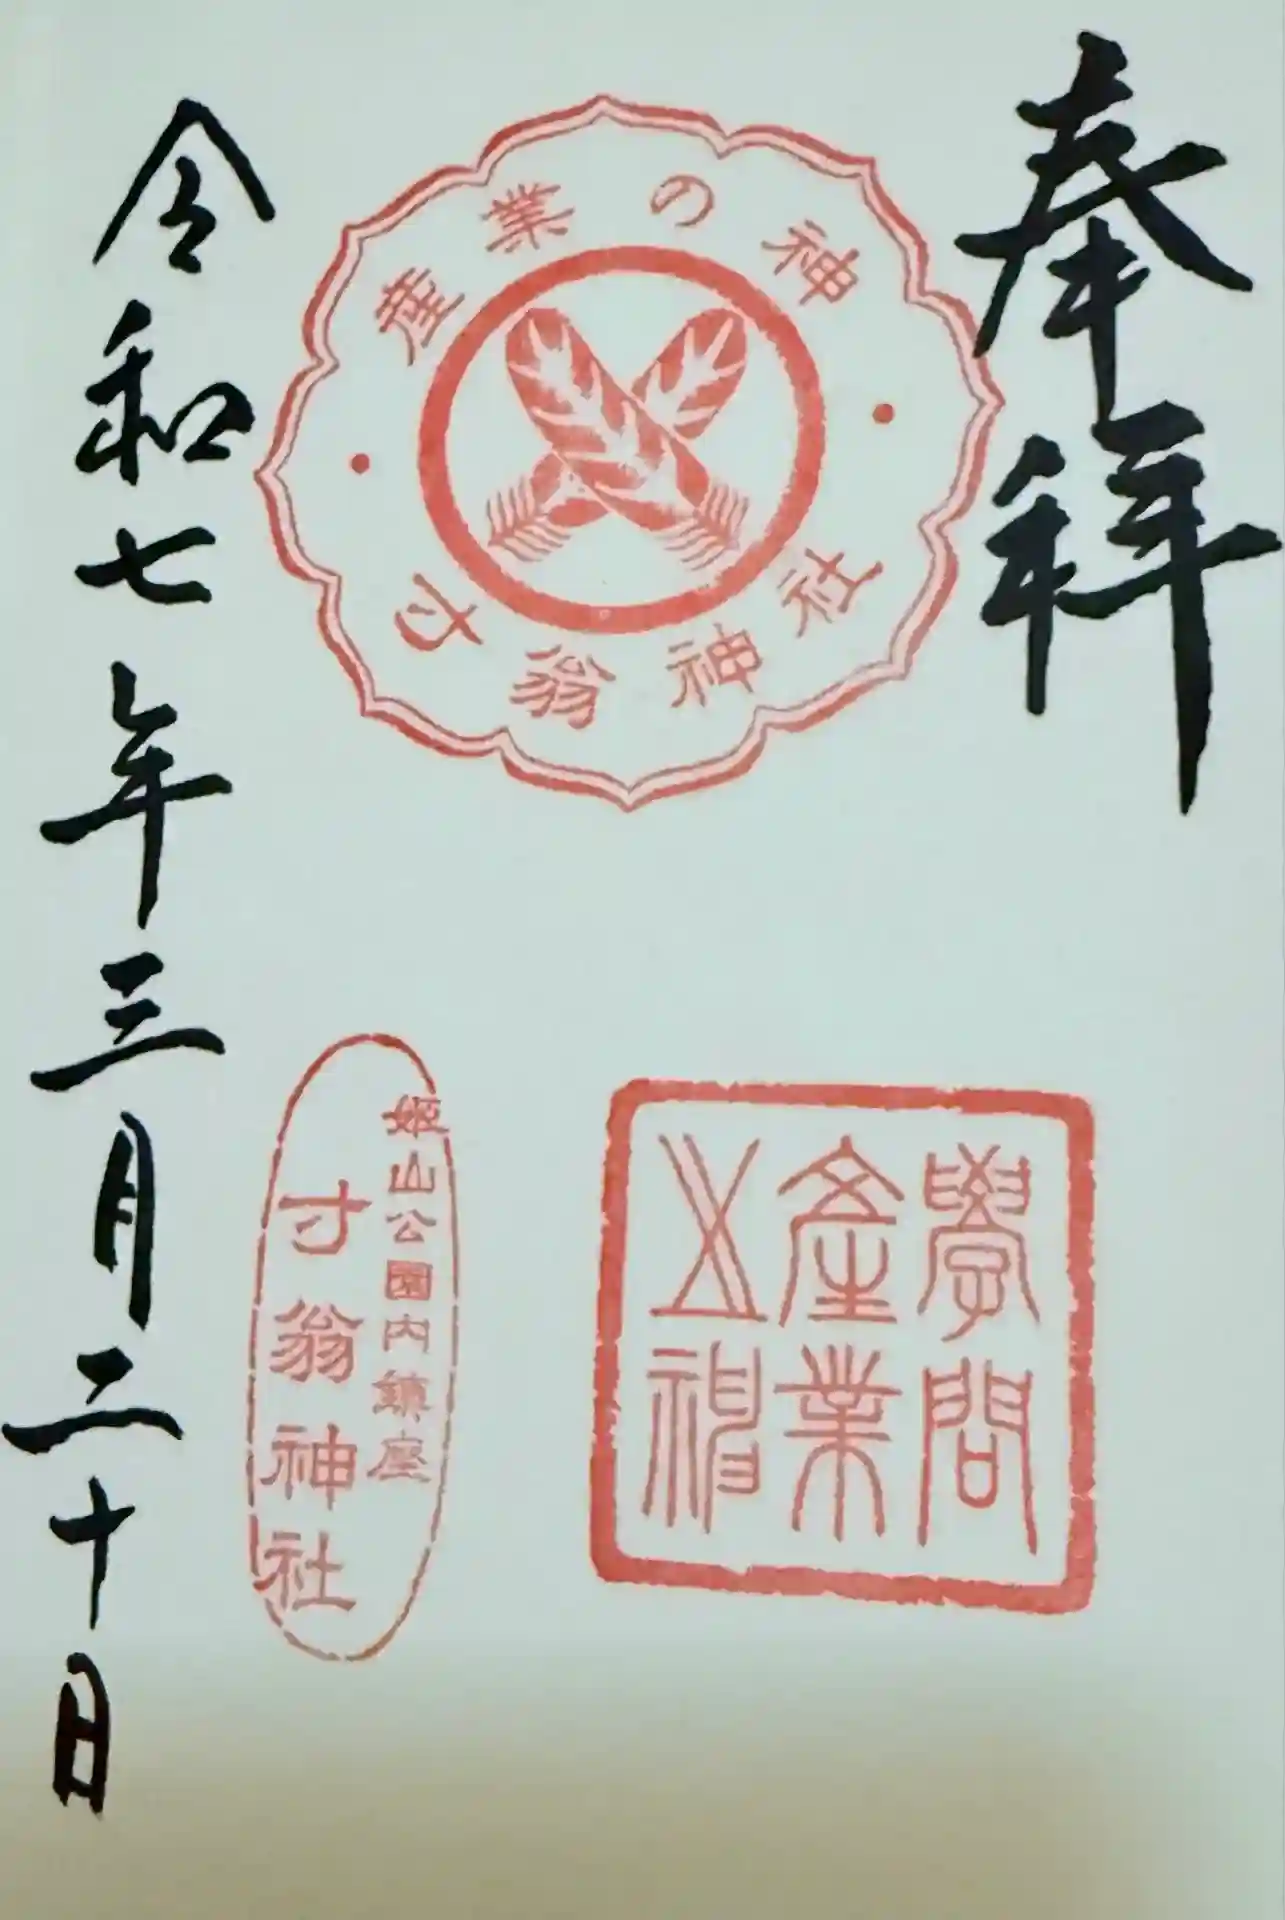 奉拜
産業の神
寸翁神社
學問
産業
姫山公園内鎮座
寸翁神社
令和七年三月二十日